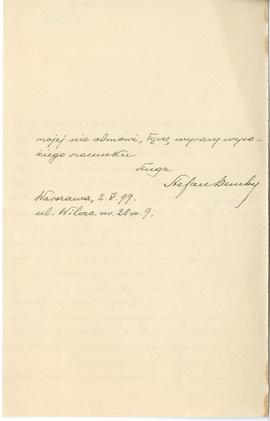 mojej nie odmówi, łączę wyrazy wyso-
kiego szacunku
Sługa
Stefan Demby
Warszawa, 2.V.99.
ul. Wilcza nr. 28 m. 9.